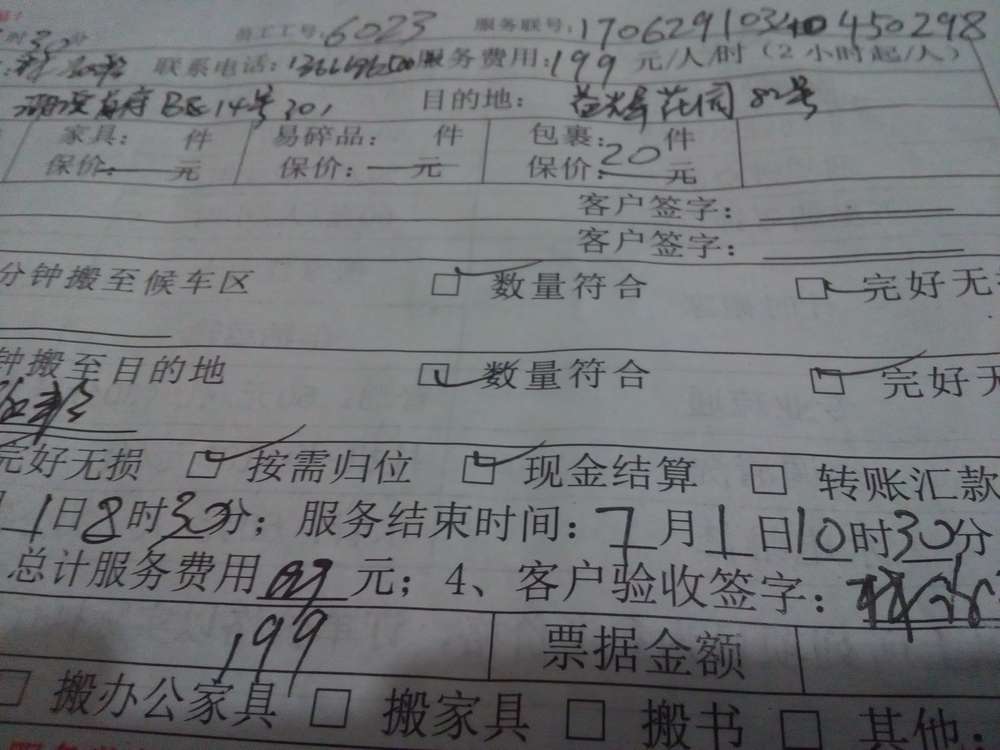 时30分 员工工号:6023 服务联号:
联系电话: 服务费用:199元/人/时(2小时起/人)
14号301 目的地: 花园 号
家具: 件 易碎品: 件 包裹: 件
保价:一元 保价:一元 保价:20元
客户签字:
客户签字:
分钟搬至候车区 数量符合 完好无
钟搬至目的地 数量符合 完好无
完好无损 按需归位 现金结算 转账汇款
1日8时30分; 服务结束时间:7月1日10时30分
总计服务费用199元; 4、客户验收签字:
199 票据金额
搬办公家具 搬家具 搬书 其他: